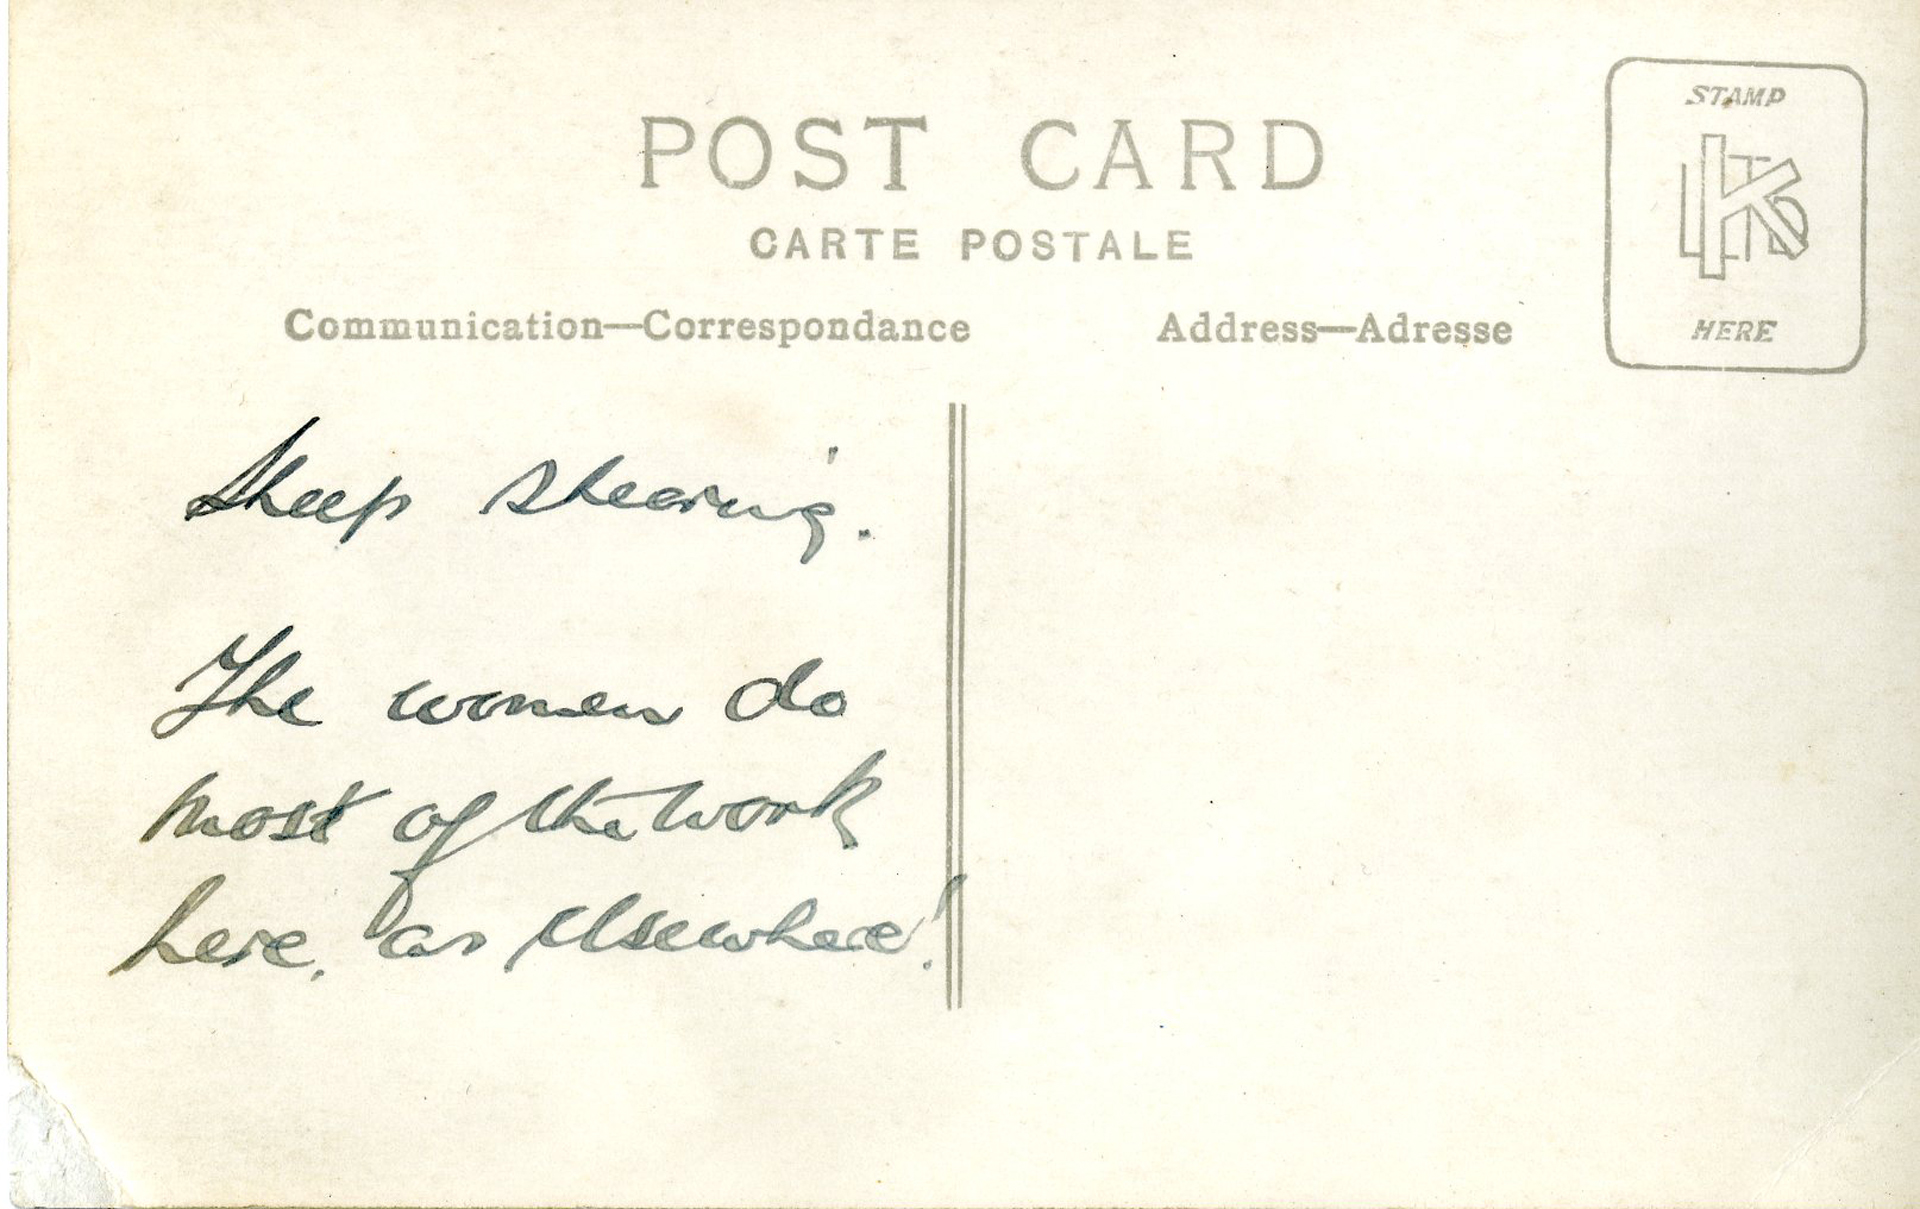 POST CARD
CARTE POSTALE
Communication—Correspondance
Address—Adresse
STAMP
K LTD
HERE
Sheep Shearing.
The women do
most of the work
here, as elsewhere!